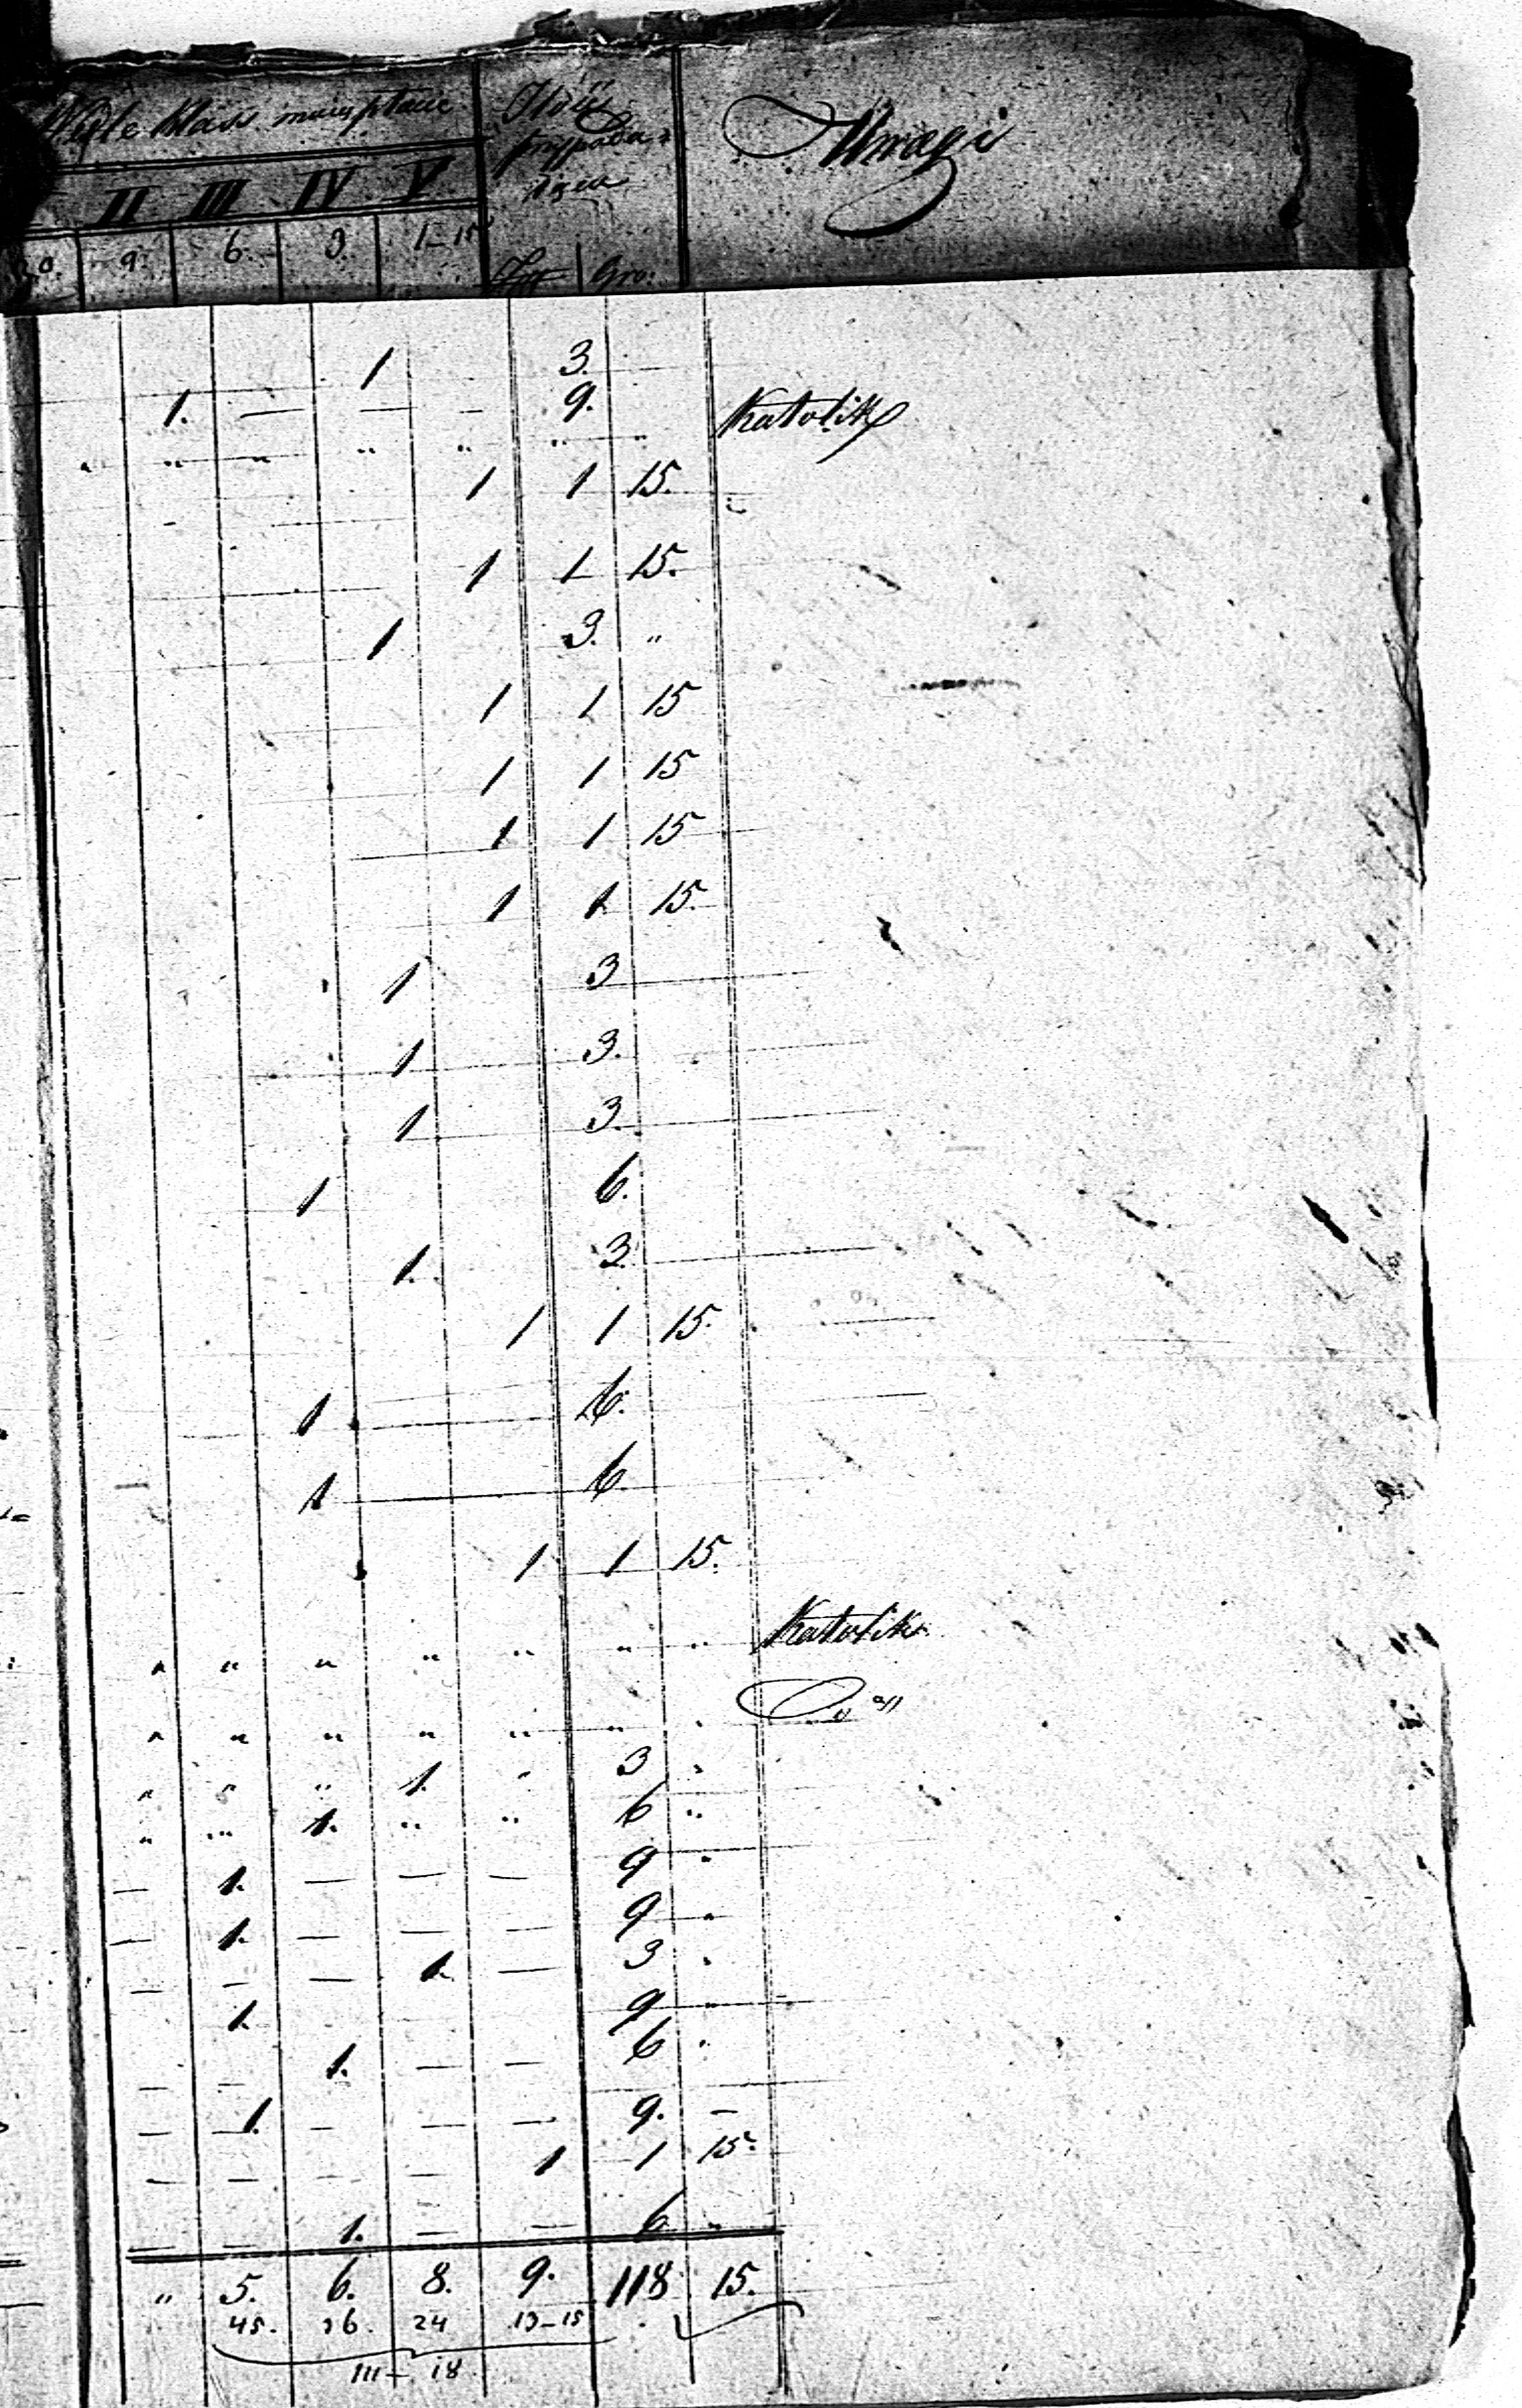 Wedle klass. maią płacić
Ilość
przypada=
iąca
Uwagi
II III IV V
9. 6. 3. 1-15
Złp Gro.
1 3.
1. — — - 9. Katolik
" " " " " " "
1 1 15.
1 1 15.
1 3. "
1 1 15
1 1 15
1 1 15
1 1 15.
1 3
1 3.
1 3.
1 6.
1. 3.
1 1 15.
1 6.
1 6.
1 1 15.
" " " " " " " Katolik
" " " " " " "
" " " 1. " 3 "
" " 1. " " 6 "
— 1. — — — 9 "
— 1. — — — 9 "
— — — 1. — 3 "
1. 9 "
— — 1. — — 6 "
— 1. — — — 9. —
— — — — 1 1 15.
— — 1. — — 6. -
" 5. 6. 8. 9. 118 15.
45. 36. 24 13-15
111 - 18